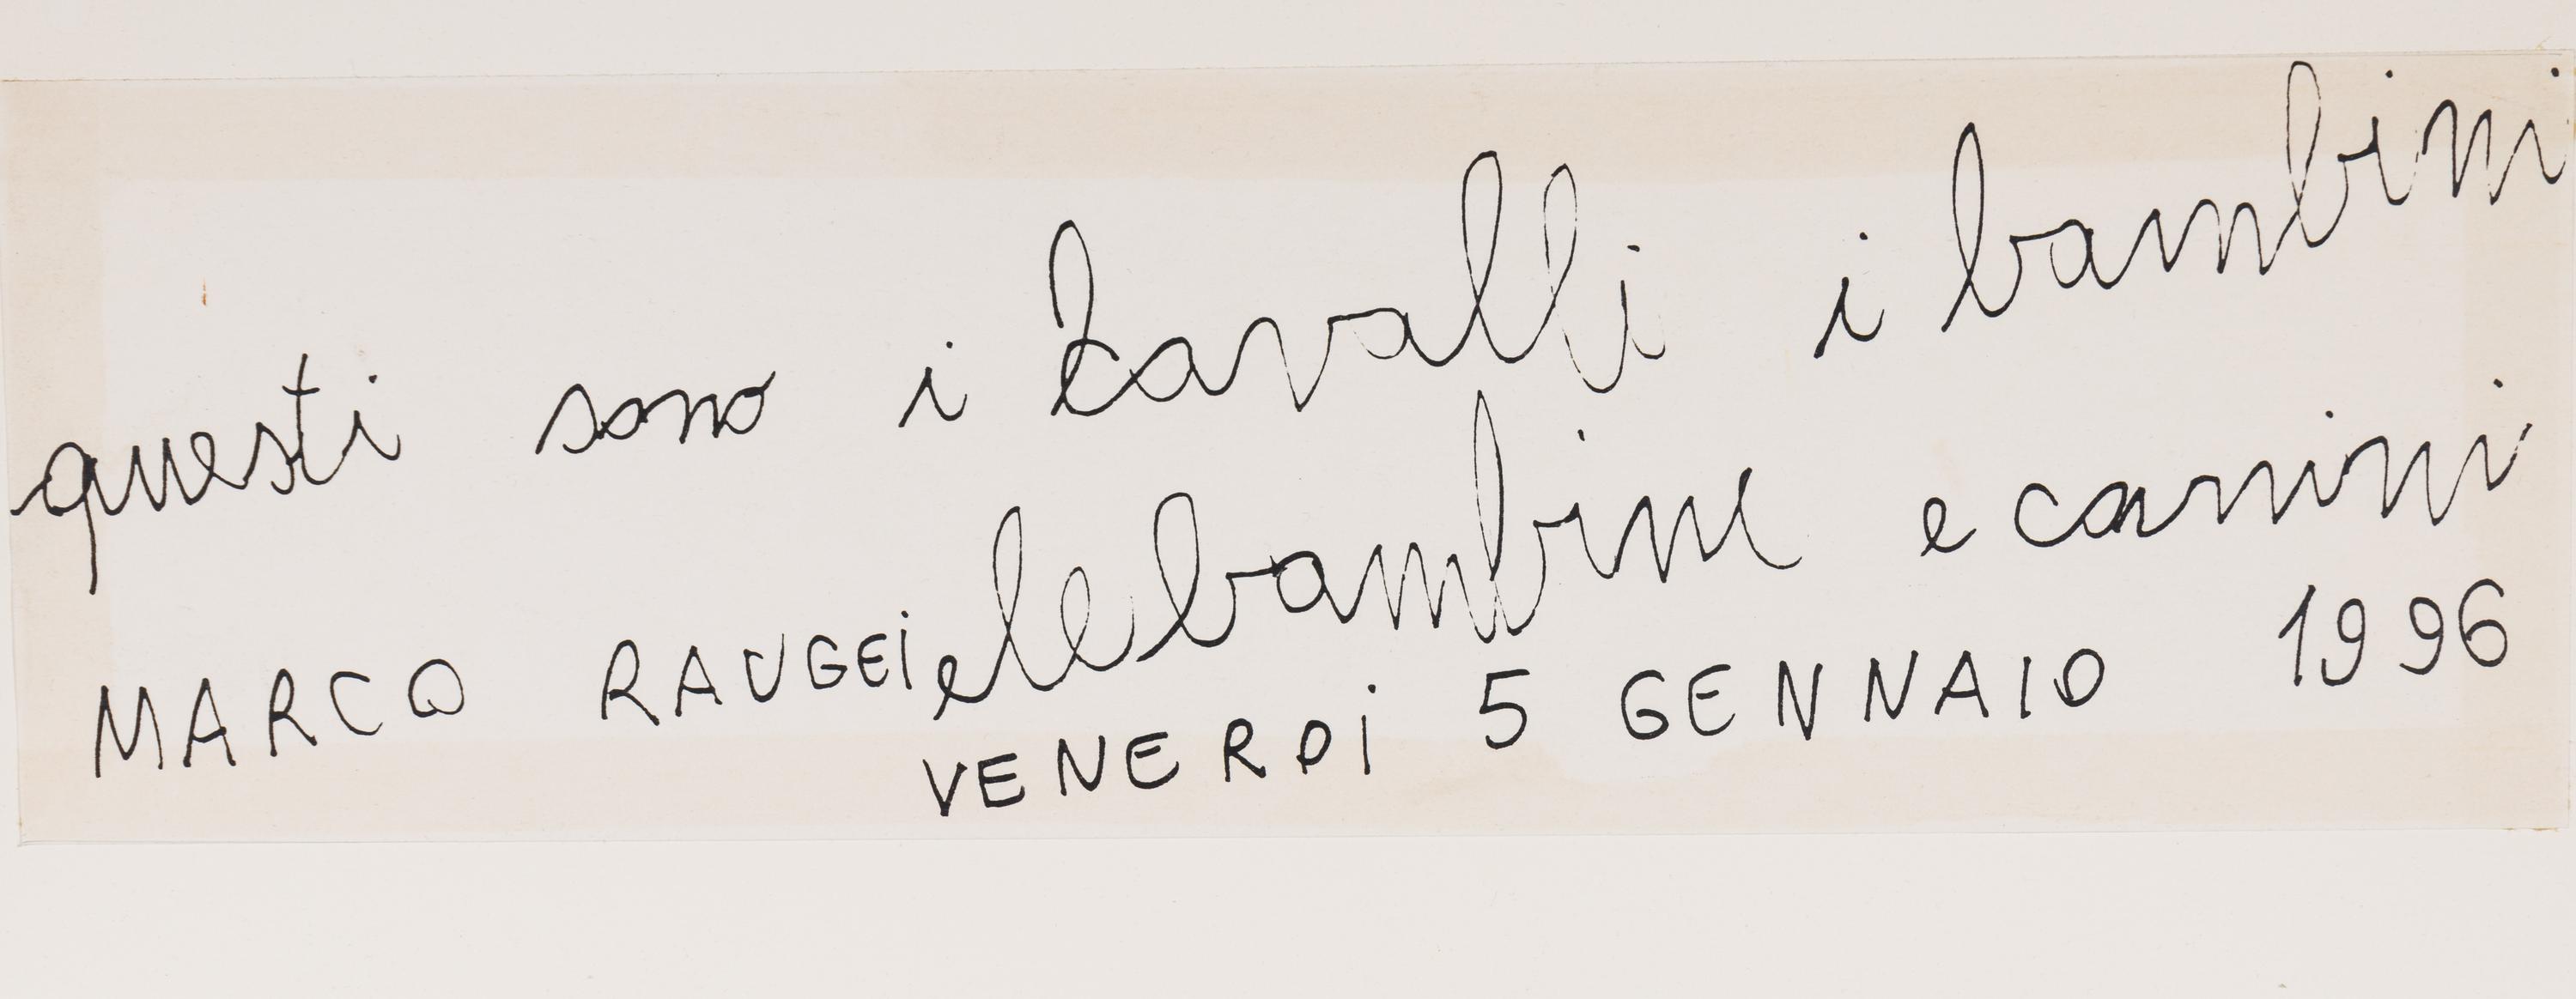 questi sono i kavalli i bambini
e le bambine e canini
MARCO RAUGEi
VENERDi 5 GENNAIO 1996